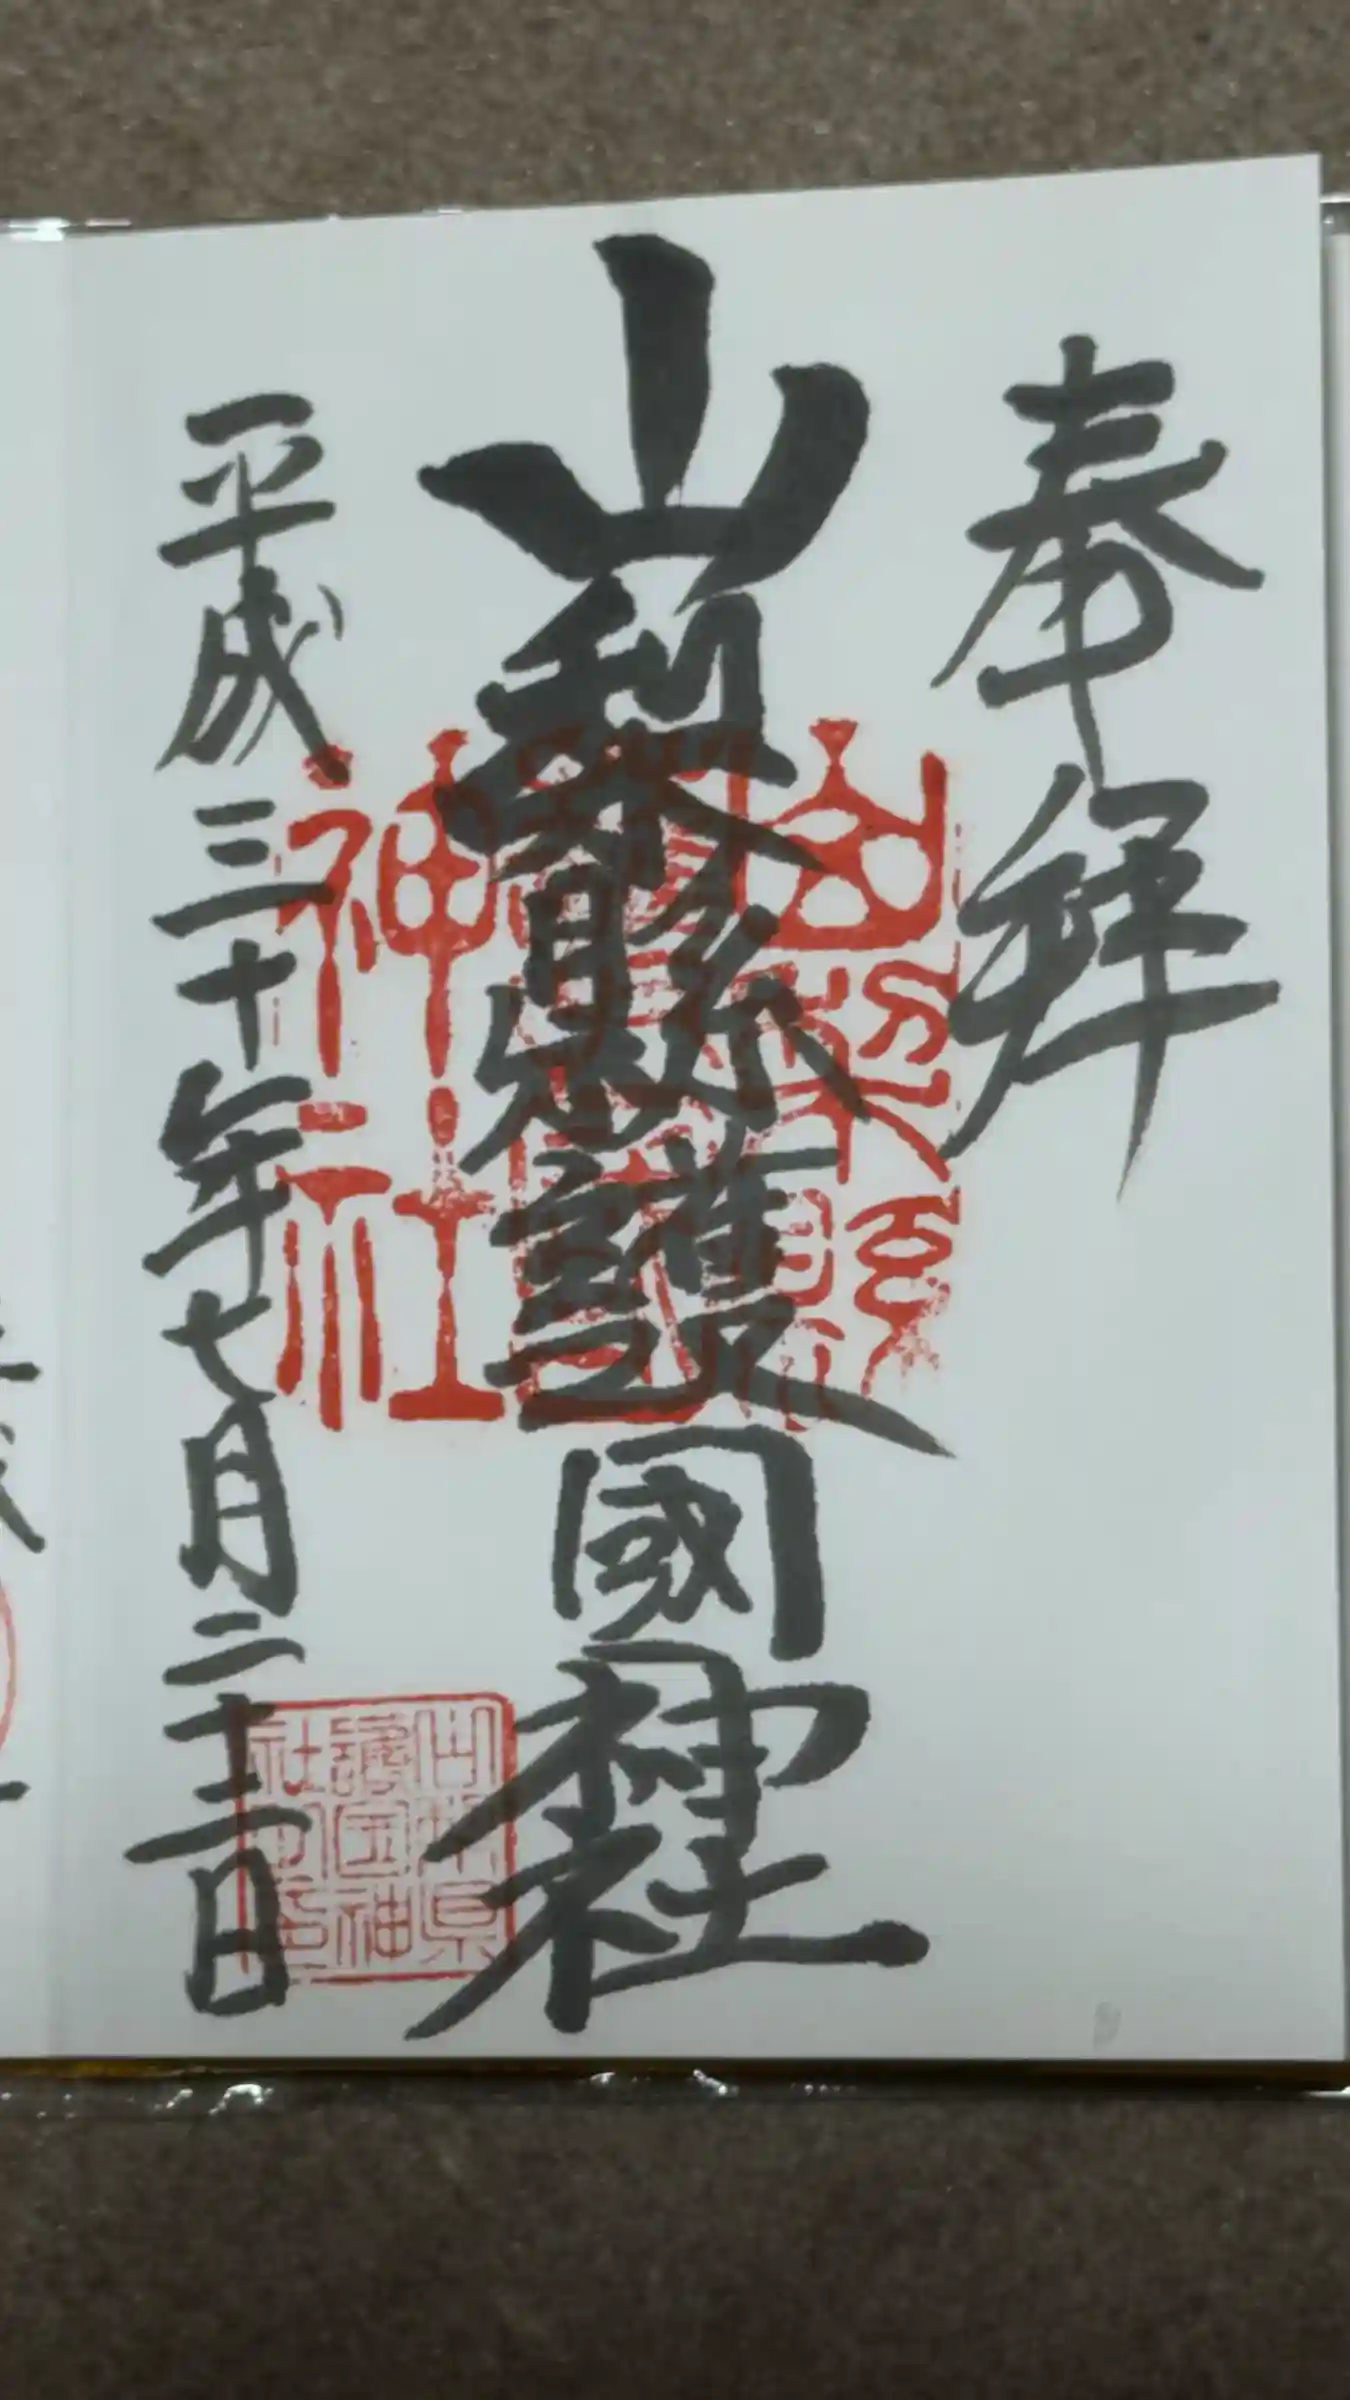 奉拝
山梨縣護國神社
平成三十年七月二十二日
山梨縣
護國
神社
山梨県
護国神
社印